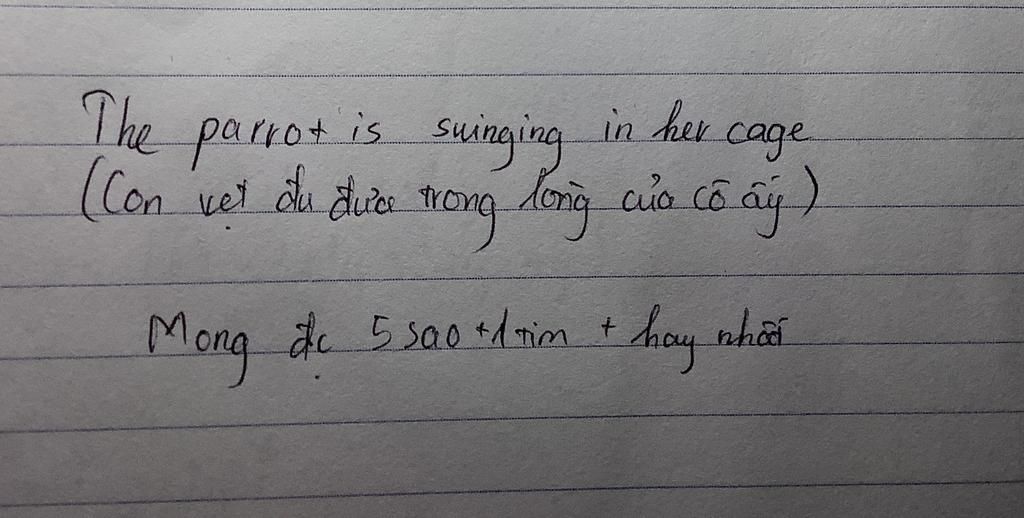 The parrot is swinging in her cage
(Con vẹt đu đưa trong lồng của cô ấy)
Mong đc 5 sao + 1 tim + hay nhất